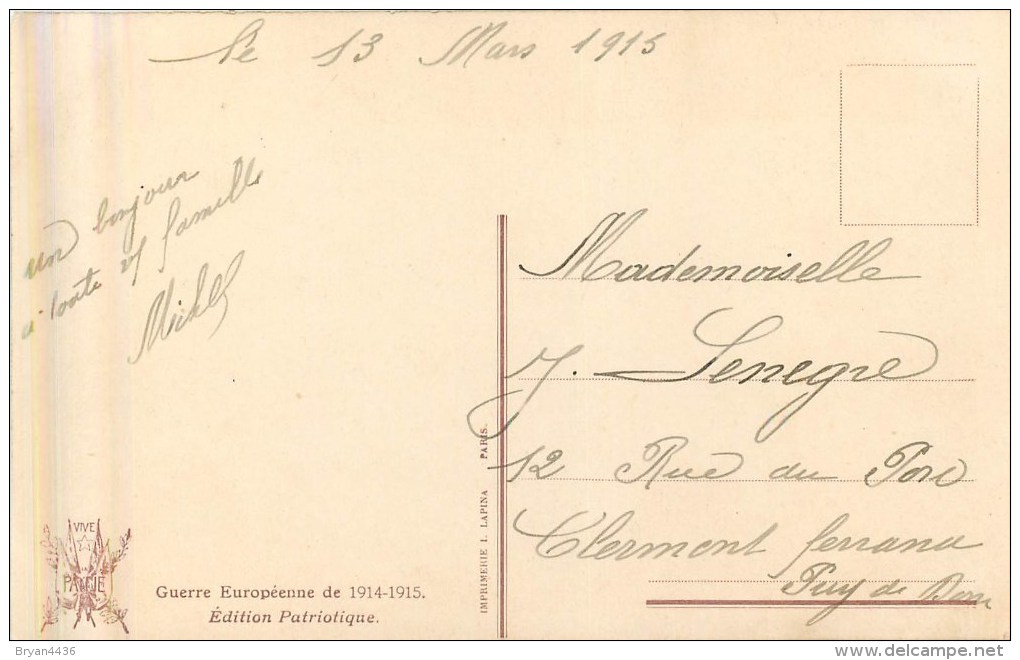 Le 13 Mars 1915
un bonjour
a toute vs famille
Michel
Mademoiselle
J. Senegre
12 Rue du Porc
Clermont ferrand
Puy de Dome
VIVE
PATRIE
Guerre Européenne de 1914-1915.
Édition Patriotique.
IMPRIMERIE I. LAPINA PARIS.
Bryan4436
www.delcampe.net